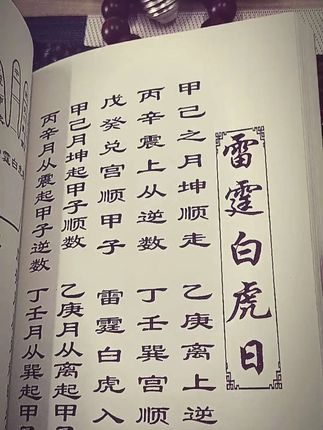 雷霆白虎日
甲己之月坤顺走 乙庚离上逆
丙辛震上从逆数 丁壬巽宫顺
戊癸兑宫顺甲子 雷霆白虎入
甲己月坤起甲子顺数 乙庚月从离起甲
丙辛月从震起甲子逆数 丁壬月从巽起甲